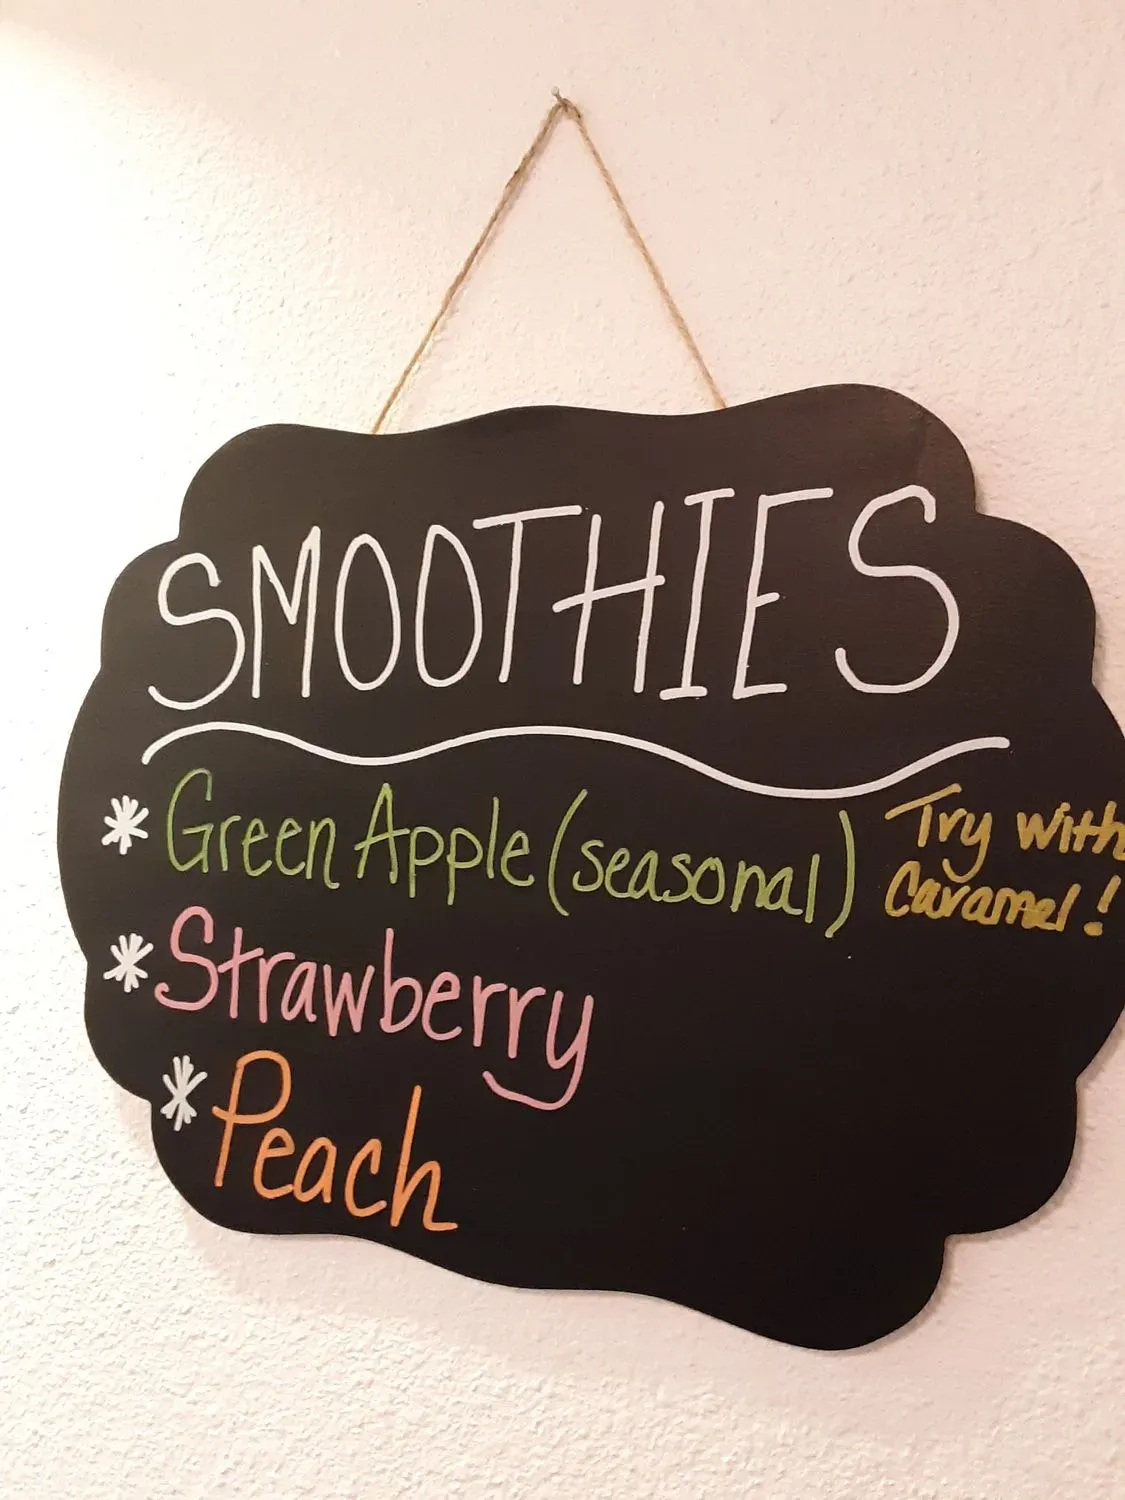 SMOOTHIES
* Green Apple (seasonal) Try with
Caramel!
* Strawberry
* Peach